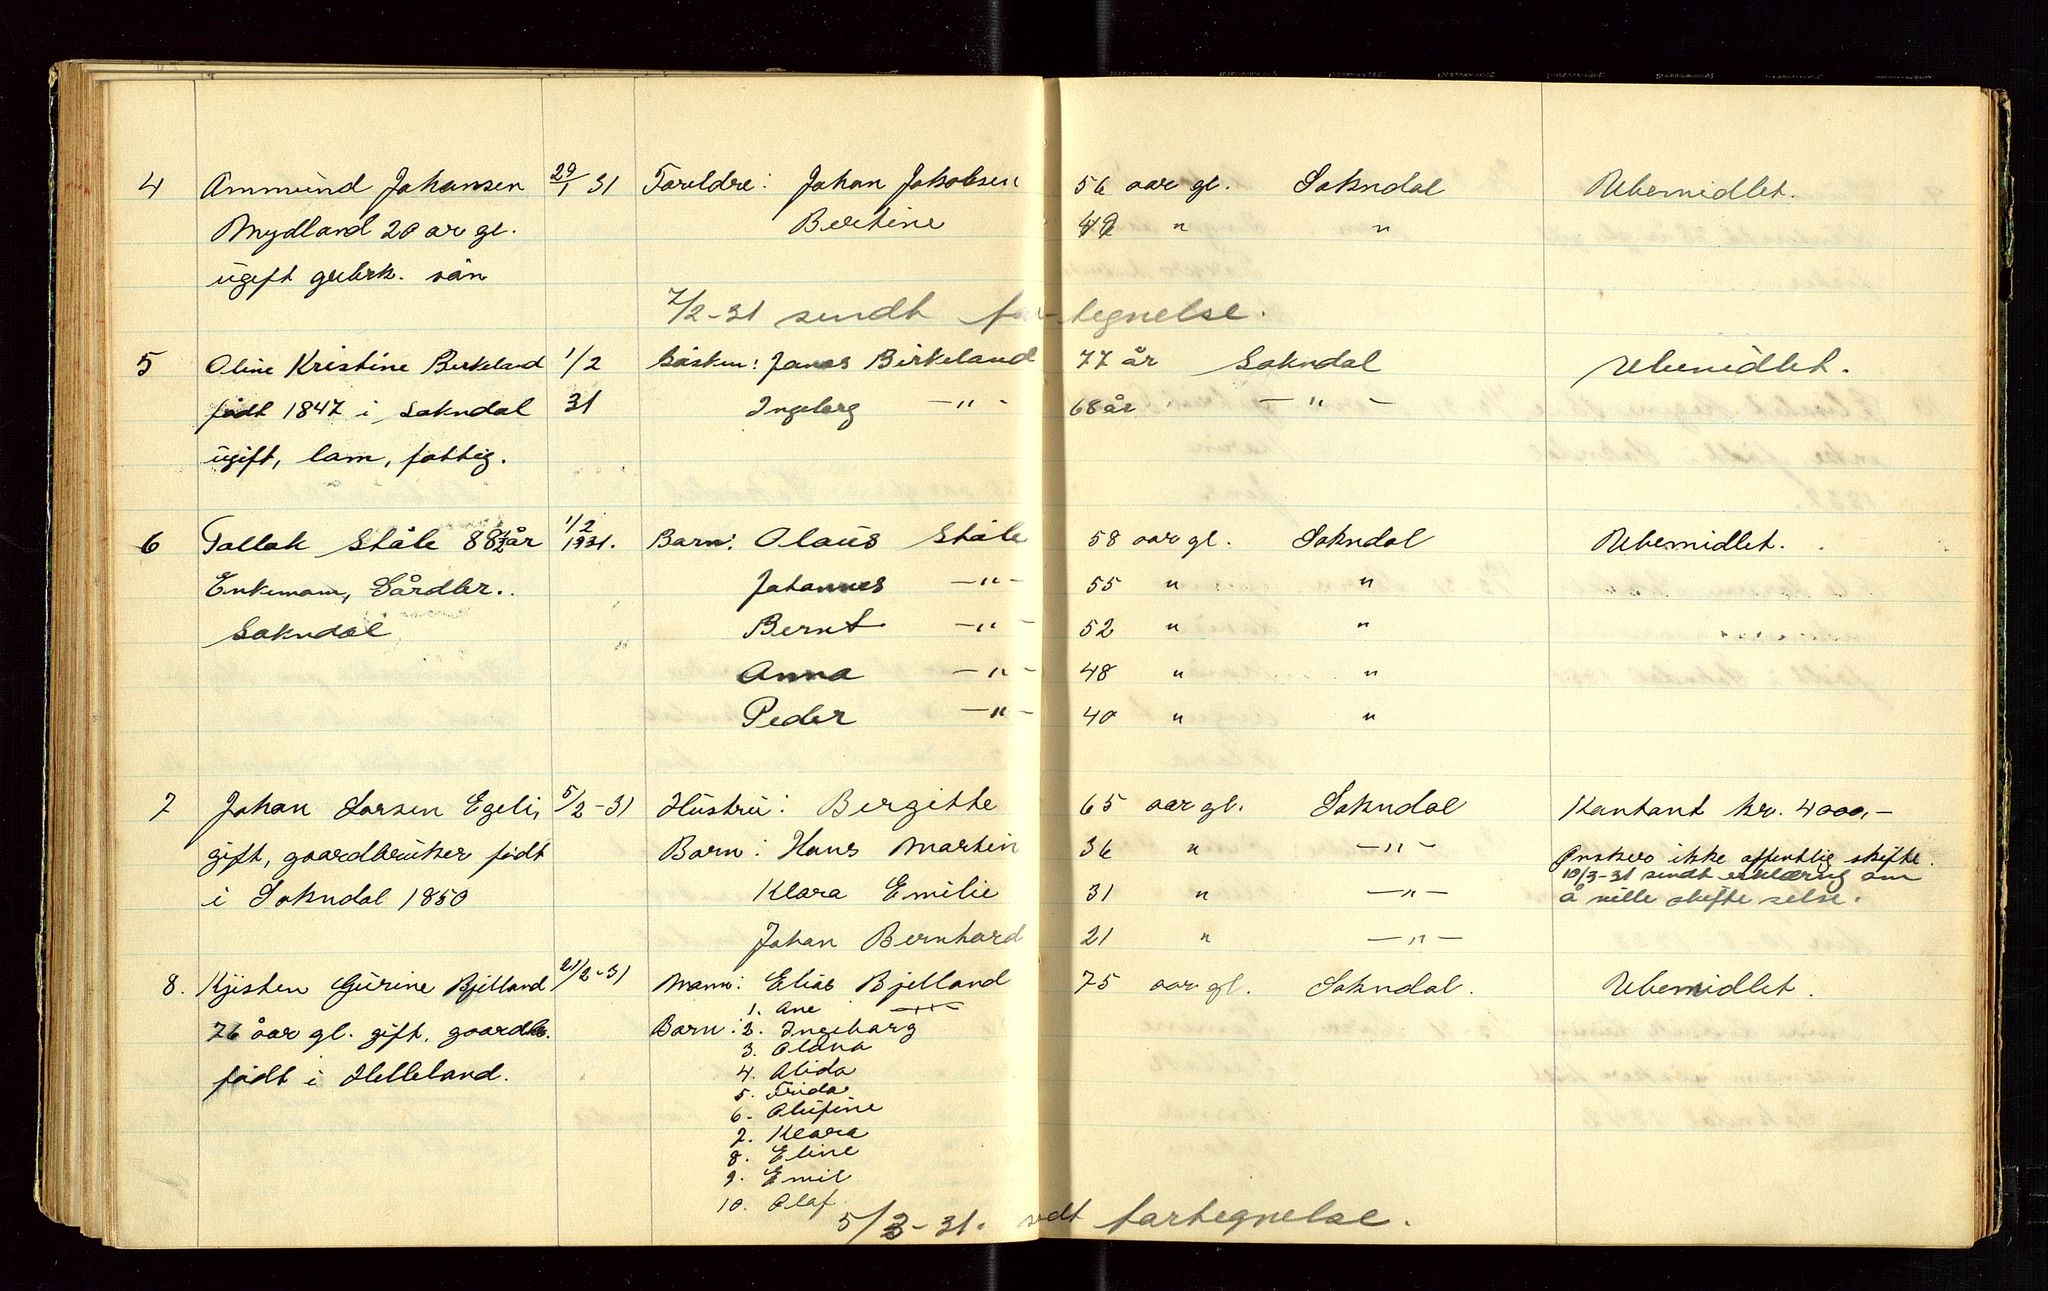 4 Ammund Johansen 29/1 31 Foreldre: Johan Jakobsen 56 aar gl. Sokndal Ubemidlet.
Mydland 20 ar gl. Bertine 49 " "
ugift grbrk. sön
7/2-31 sendt fortegnelse.
5 Oline Kristine Birkeland 1/2 Sösken: Jonas Birkeland 77 år Sokndal Ubemidlet.
födt 1847 i Sokndal 31 Ingeborg —"— 68 år —"—
ugift, lam, fattig.
6 Tollak Ståle 88½ år 1/2 1931. Barn: Olaus Ståle 58 aar gl. Sokndal Ubemidlet.
Enkemann, Gårdbr.. Johannes —"— 55 " "
Sokndal Bernt —"— 52 " "
Anna —"— 48 " "
Peder —"— 40 " "
7 Johan Larsen Egeli, 5/2-31 Hustru: Bergitte 65 aar gl. Sokndal Kontant kr. 4000,-
gift, gaardbruker födt Barn: Hans Martin 36 " —"— Önskes ikke offentlig skifte.
10/3-31 sendt erklæring om
i Sokndal 1850 Klara Emilie 31 " —"— å ville skifte selse.
Johan Bernhard 21 " —"—
8. Kjisten Gurine Bjelland 21/2-31 Mann: Elias Bjelland 75 aar gl. Sokndal. Ubemidlet.
1. Ane —"—
76 åar gl. gift, gaardb. Barn: 2. Ingeborg
3. Oldna
födt i Helleland. 4. Alida
5. Frida
6. Olufine
7. Klara
8. Eline
9. Emil
10. Olaf
5/3-31. sedt fortegnelse.